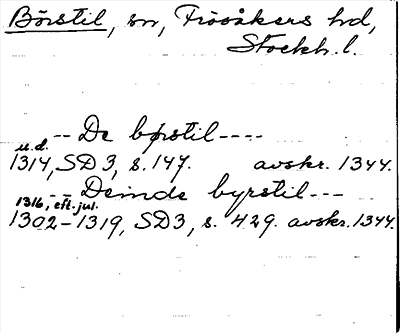 Börstil, sn, Frösåkers hd,
Stockh. l.
-- De børstil ----
u.d.
1314, SD 3, s. 147. avskr. 1344.
-- Deinde byrstil ---
1316, eft. jul.
1302-1319, SD3, s. 429. avskr. 1344.